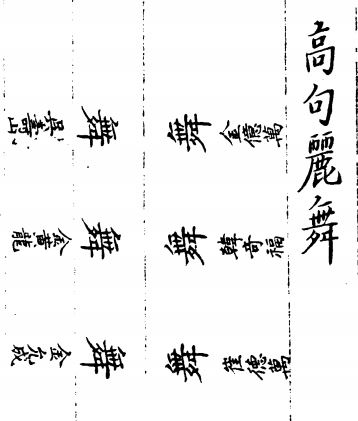 高句麗舞
舞 金億萬
舞 韓奇福
舞 崔德萬
舞 吳壽山
舞 金黃龍
舞 金允成